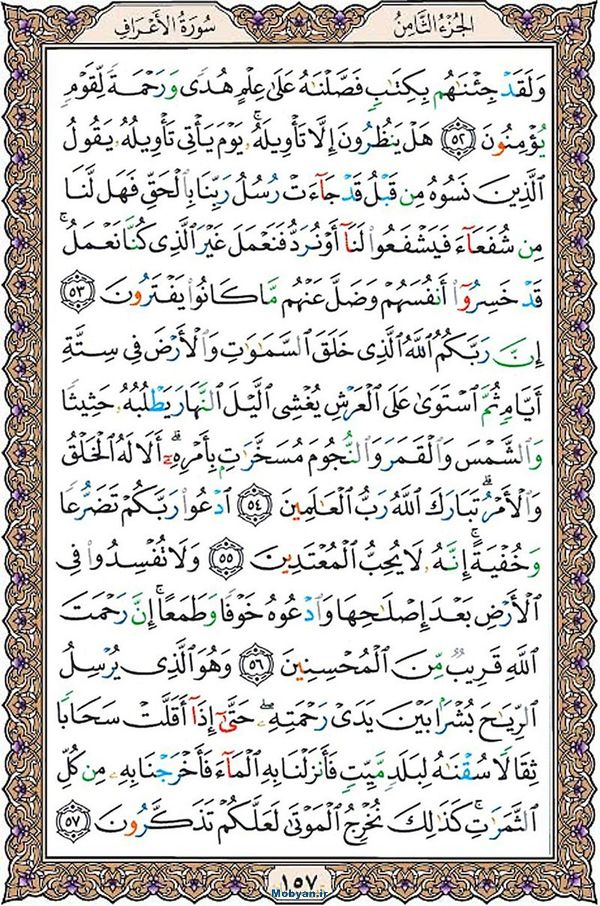 الجزء الثامن
سورة الأعراف
وَلَقَدْ جِئْنَاهُم بِكِتَابٍ فَصَّلْنَاهُ عَلَىٰ عِلْمٍ هُدًى وَرَحْمَةً لِّقَوْمٍ
يُؤْمِنُونَ ٥٢ هَلْ يَنظُرُونَ إِلَّا تَأْوِيلَهُ ۚ يَوْمَ يَأْتِي تَأْوِيلُهُ يَقُولُ
الَّذِينَ نَسُوهُ مِن قَبْلُ قَدْ جَاءَتْ رُسُلُ رَبِّنَا بِالْحَقِّ فَهَل لَّنَا
مِن شُفَعَاءَ فَيَشْفَعُوا لَنَا أَوْ نُرَدُّ فَنَعْمَلَ غَيْرَ الَّذِي كُنَّا نَعْمَلُ ۚ
قَدْ خَسِرُوا أَنفُسَهُمْ وَضَلَّ عَنْهُم مَّا كَانُوا يَفْتَرُونَ ٥٣
إِنَّ رَبَّكُمُ اللَّهُ الَّذِي خَلَقَ السَّمَاوَاتِ وَالْأَرْضَ فِي سِتَّةِ
أَيَّامٍ ثُمَّ اسْتَوَىٰ عَلَى الْعَرْشِ يُغْشِي اللَّيْلَ النَّهَارَ يَطْلُبُهُ حَثِيثًا
وَالشَّمْسَ وَالْقَمَرَ وَالنُّجُومَ مُسَخَّرَاتٍ بِأَمْرِهِ ۗ أَلَا لَهُ الْخَلْقُ
وَالْأَمْرُ ۗ تَبَارَكَ اللَّهُ رَبُّ الْعَالَمِينَ ٥٤ ادْعُوا رَبَّكُمْ تَضَرُّعًا
وَخُفْيَةً ۚ إِنَّهُ لَا يُحِبُّ الْمُعْتَدِينَ ٥٥ وَلَا تُفْسِدُوا فِي
الْأَرْضِ بَعْدَ إِصْلَاحِهَا وَادْعُوهُ خَوْفًا وَطَمَعًا ۚ إِنَّ رَحْمَتَ
اللَّهِ قَرِيبٌ مِّنَ الْمُحْسِنِينَ ٥٦ وَهُوَ الَّذِي يُرْسِلُ
الرِّيَاحَ بُشْرًا بَيْنَ يَدَيْ رَحْمَتِهِ ۖ حَتَّىٰ إِذَا أَقَلَّتْ سَحَابًا
ثِقَالًا سُقْنَاهُ لِبَلَدٍ مَّيِّتٍ فَأَنزَلْنَا بِهِ الْمَاءَ فَأَخْرَجْنَا بِهِ مِن كُلِّ
الثَّمَرَاتِ ۚ كَذَٰلِكَ نُخْرِجُ الْمَوْتَىٰ لَعَلَّكُمْ تَذَكَّرُونَ ٥٧
١٥٧
Mobyan.ir